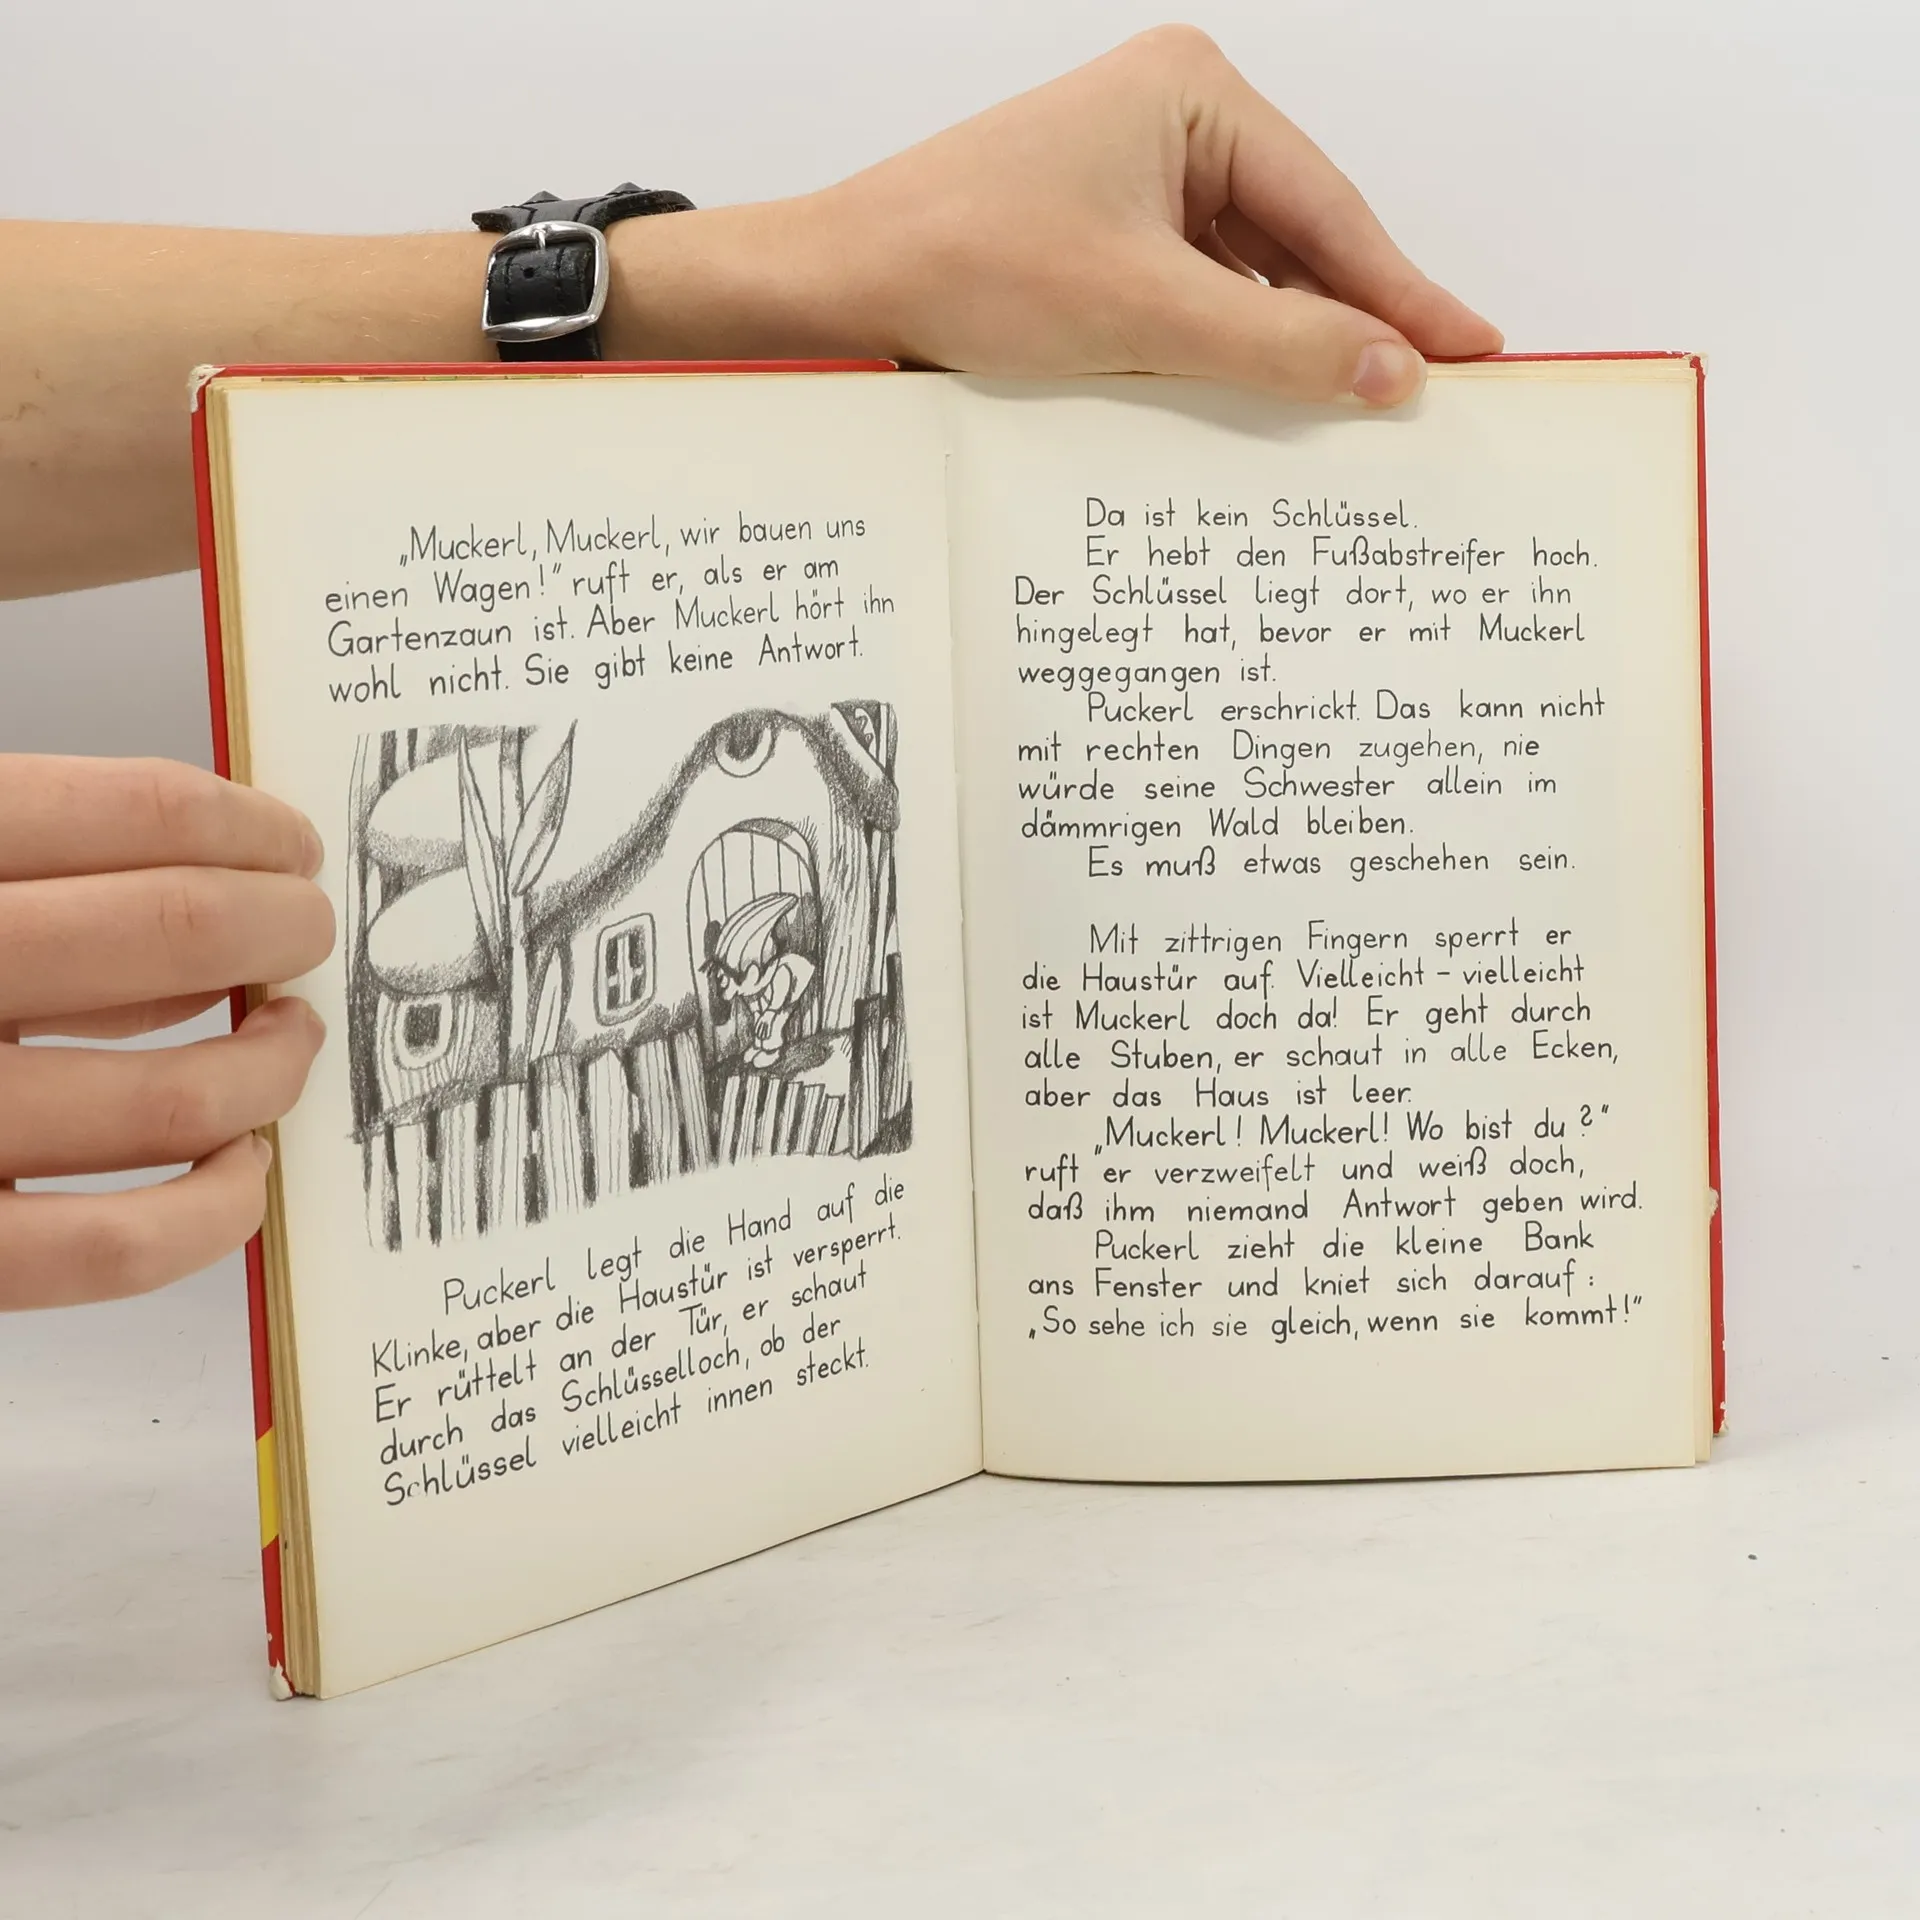 „Muckerl, Muckerl, wir bauen uns
einen Wagen!" ruft er, als er am
Gartenzaun ist. Aber Muckerl hört ihn
wohl nicht. Sie gibt keine Antwort.
Puckerl legt die Hand auf die
Klinke, aber die Haustür ist versperrt.
Er rüttelt an der Tür, er schaut
durch das Schlüsselloch, ob der
Schlüssel vielleicht innen steckt.
Da ist kein Schlüssel.
Er hebt den Fußabstreifer hoch.
Der Schlüssel liegt dort, wo er ihn
hingelegt hat, bevor er mit Muckerl
weggegangen ist.
Puckerl erschrickt. Das kann nicht
mit rechten Dingen zugehen, nie
würde seine Schwester allein im
dämmrigen Wald bleiben.
Es muß etwas geschehen sein.
Mit zittrigen Fingern sperrt er
die Haustür auf. Vielleicht – vielleicht
ist Muckerl doch da! Er geht durch
alle Stuben, er schaut in alle Ecken,
aber das Haus ist leer.
„Muckerl! Muckerl! Wo bist du?"
ruft er verzweifelt und weiß doch,
daß ihm niemand Antwort geben wird.
Puckerl zieht die kleine Bank
ans Fenster und kniet sich darauf:
„So sehe ich sie gleich, wenn sie kommt!"